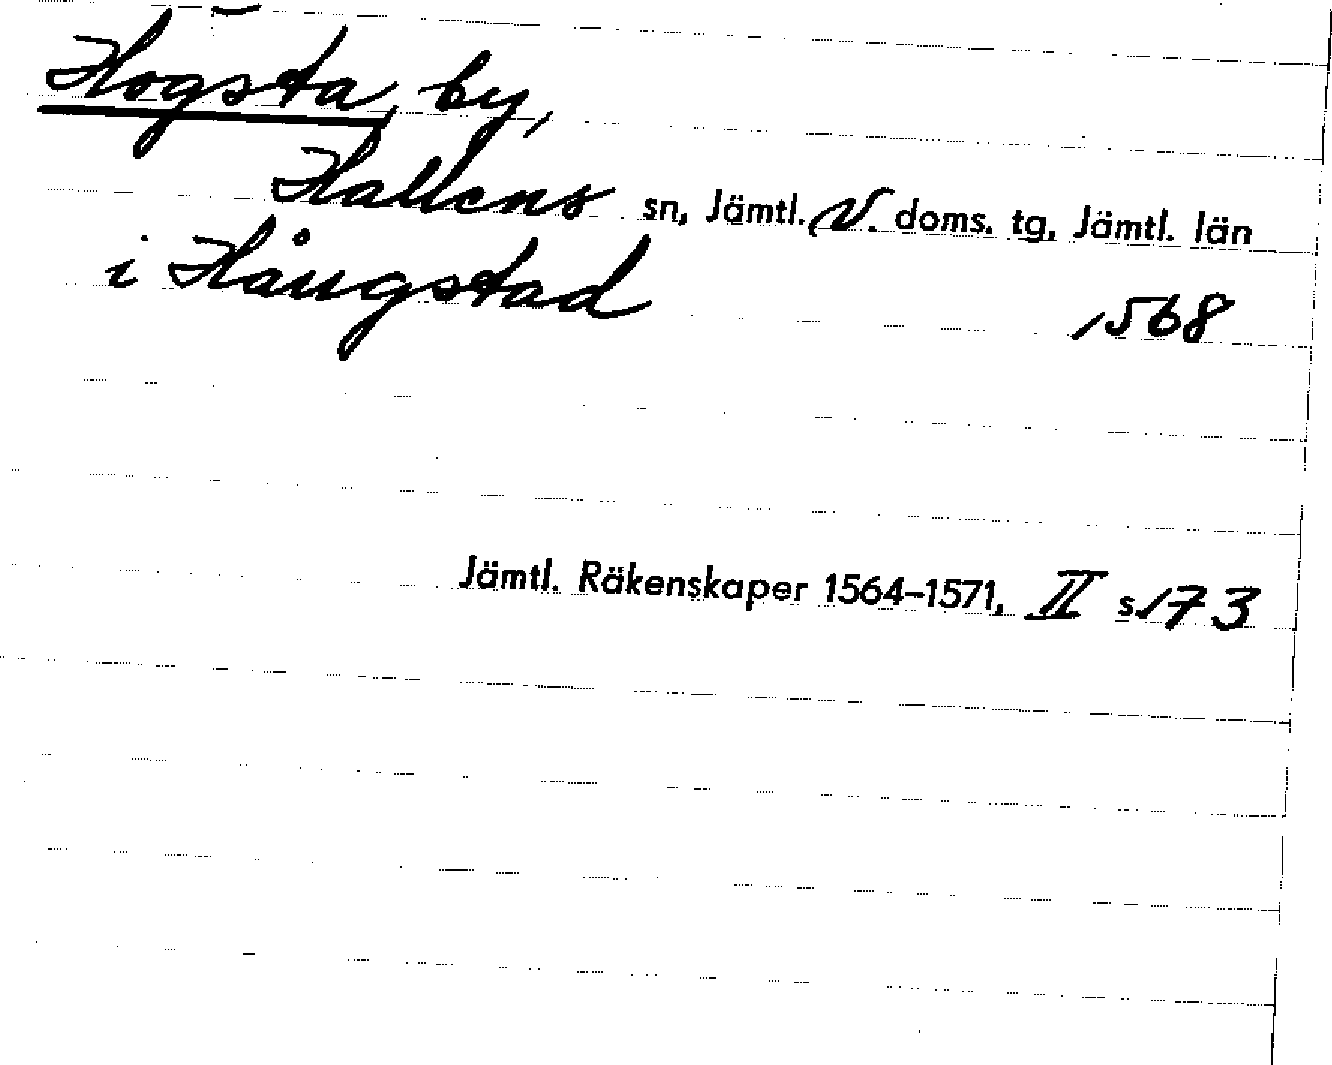 Högsta by,
Hallens sn, Jämtl. V. doms. tg, Jämtl. län
i Håugstad 1568
Jämtl. Räkenskaper 1564–1571, II s. 173